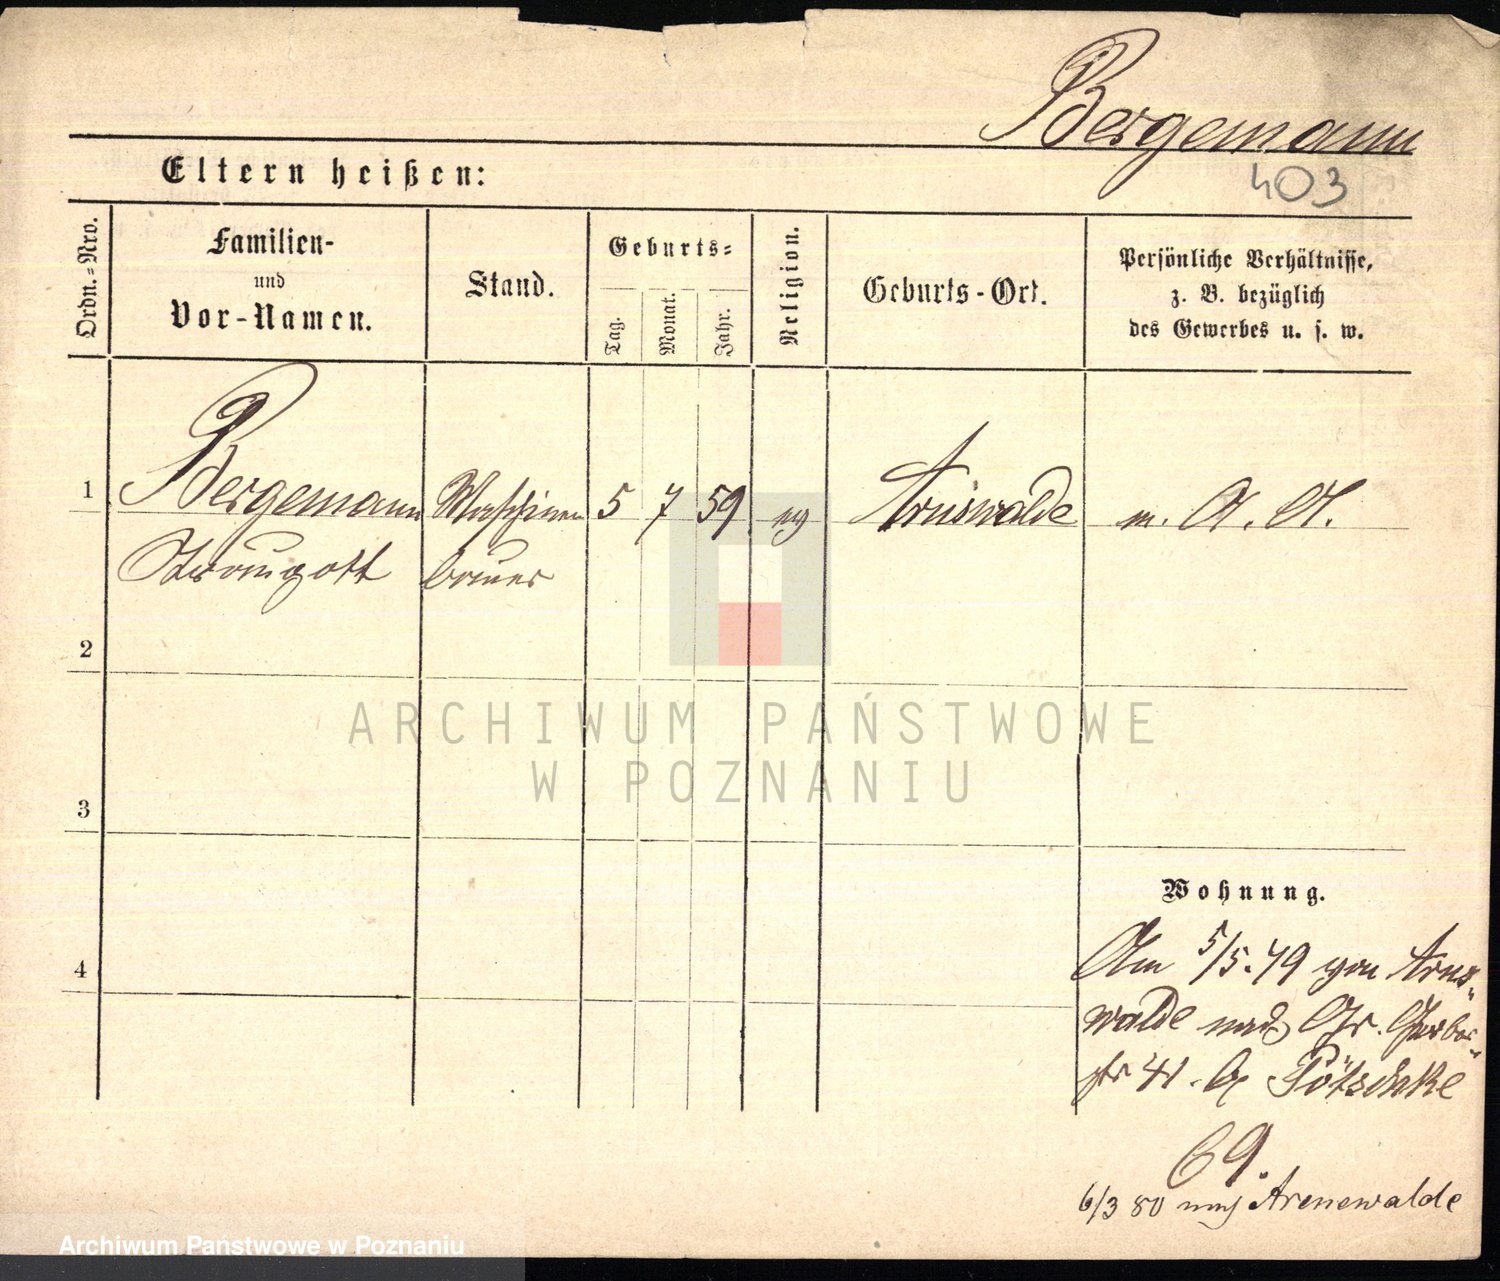 Bergemann
403
Eltern heißen:
Ordn.=Nro.
Familien-
und
Vor-Namen.
Stand.
Geburts=
Tag.
Monat.
Jahr.
Religion.
Geburts-Ort.
Persönliche Verhältnisse,
z. B. bezüglich
des Gewerbes u. s. w.
1
Bergemann Maschinen 5 7 59 ev Arnswalde m. A. A.
Traugott bauer
2
ARCHIWUM PAŃSTWOWE
W POZNANIU
3
Wohnung.
4
Am 5/5.79 von Arns-
walde nach Gr. Gerber-
str 41. b/ Pötschke
69.
6/3 80 nach Arenswalde
Archiwum Państwowe w Poznaniu